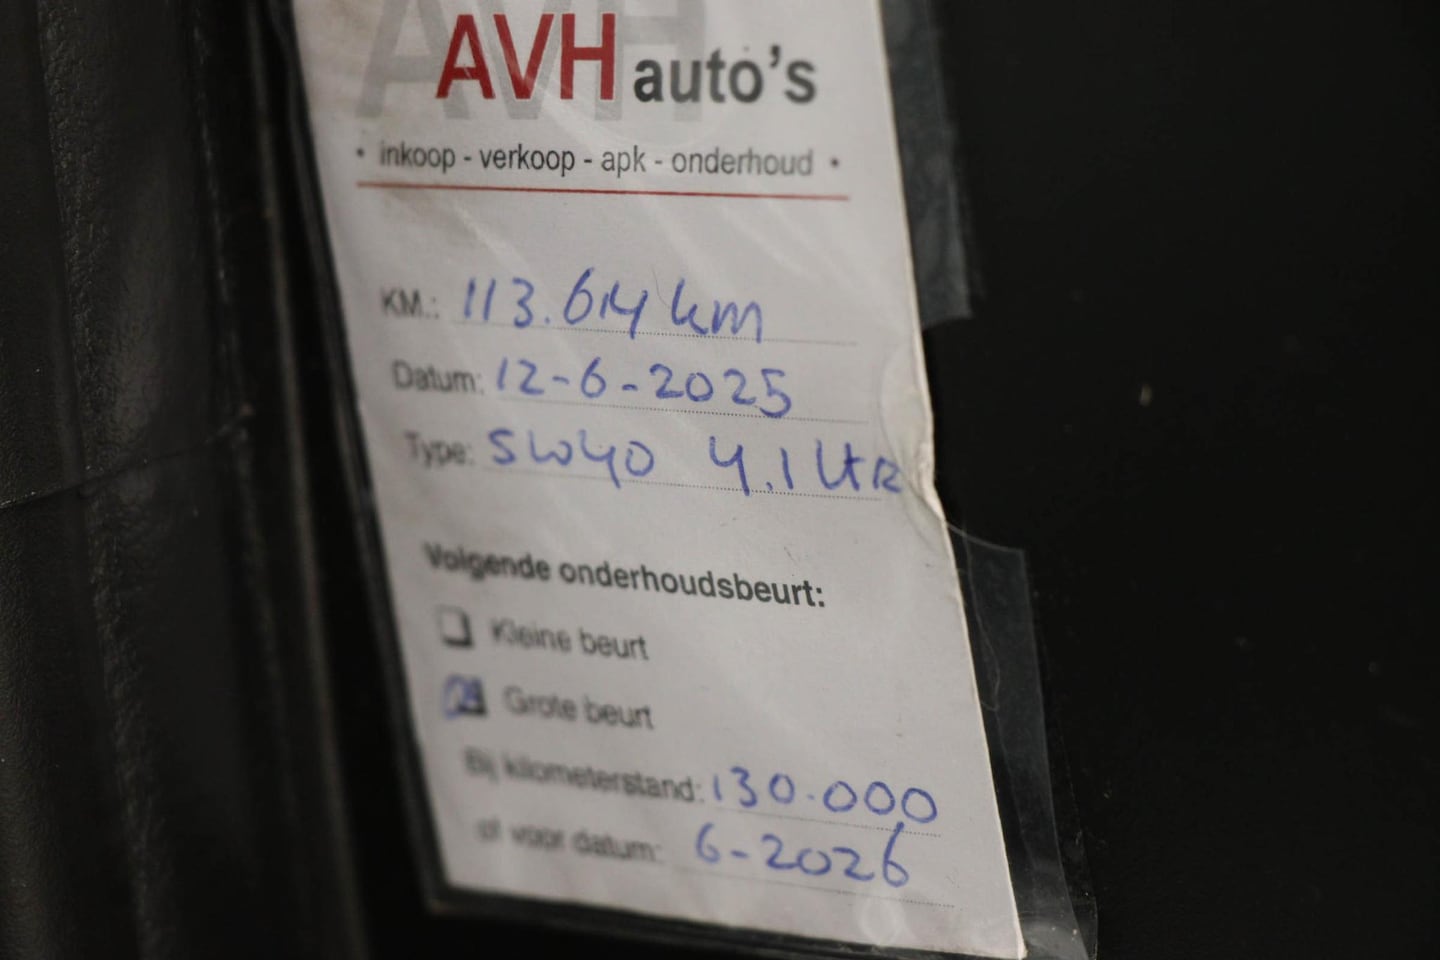 AVH auto's
• inkoop - verkoop - apk - onderhoud •
KM.: 113.614 km
Datum: 12-6-2025
Type: 5W40 4.1 LtR
Volgende onderhoudsbeurt:
Kleine beurt
Grote beurt
Bij kilometerstand: 130.000
of voor datum: 6-2026